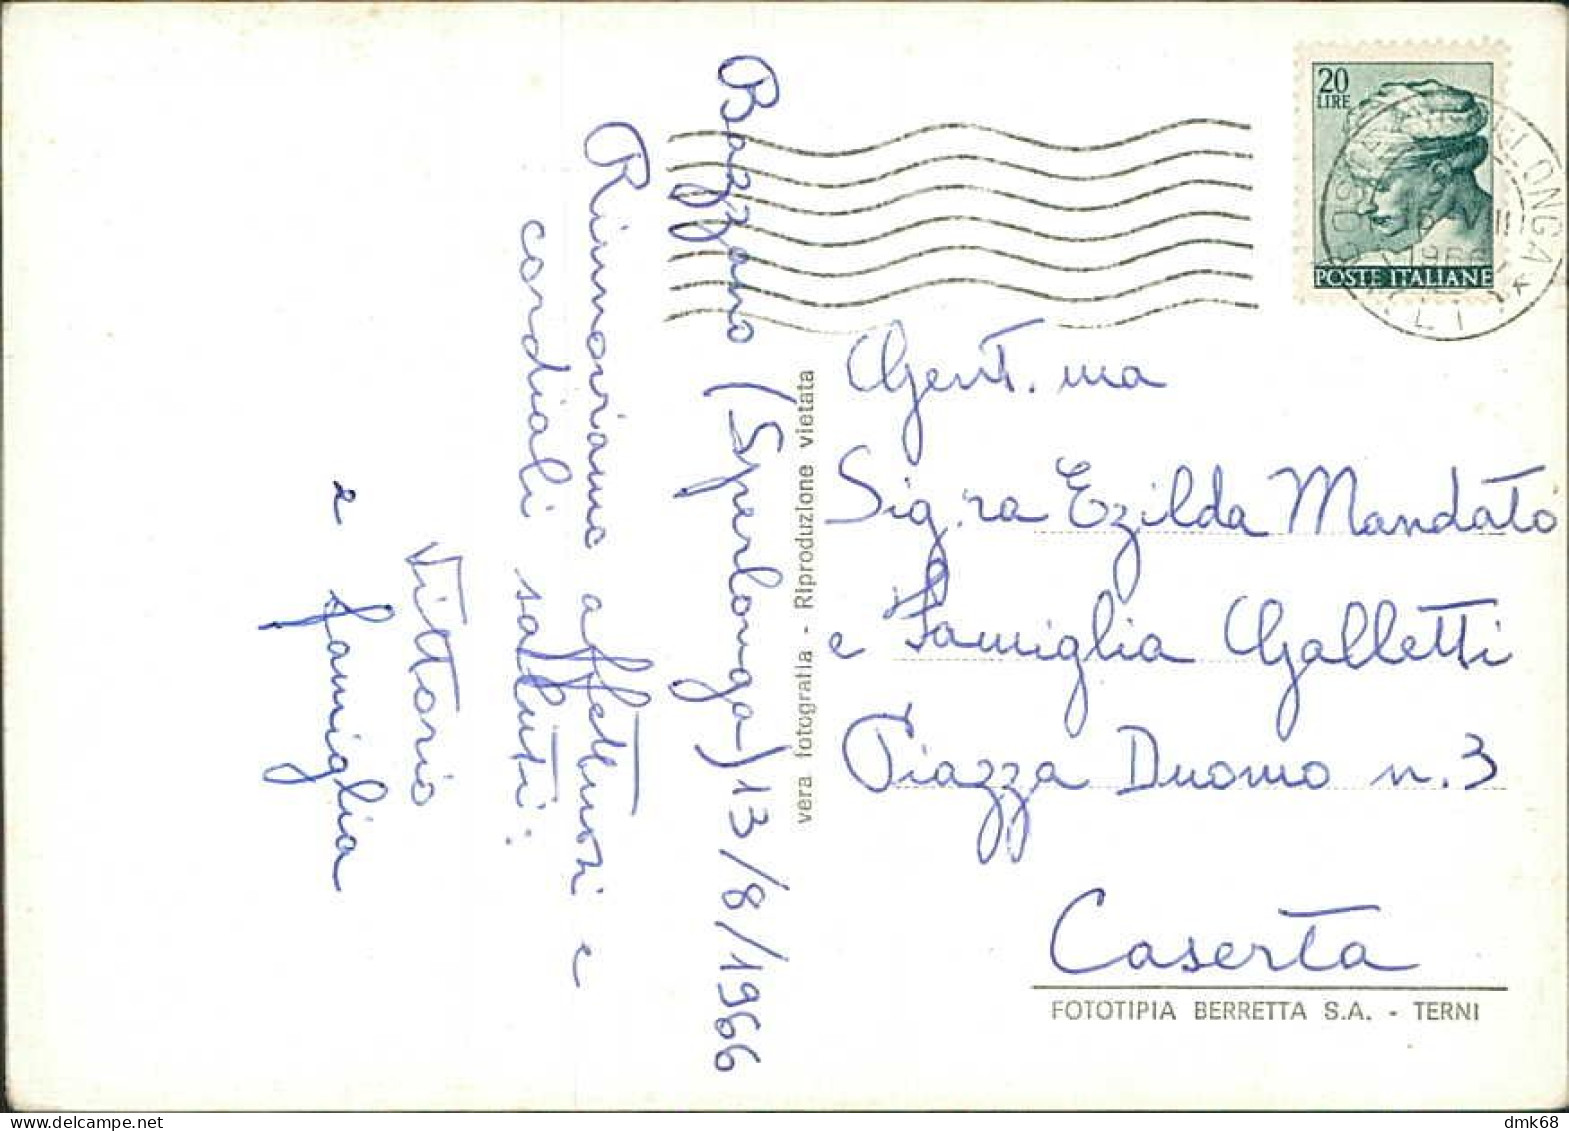 Bazzano (Sperlonga) 13/8/1966
Rinnoviamo affettuosi e
cordiali saluti:
Vittorio
e famiglia
vera fotografia - Riproduzione vietata
20
LIRE
POSTE ITALIANE
Gent.ma
Sig.ra Ezilda Mandato
e Famiglia Galletti
Piazza Duomo n. 3
Caserta
FOTOTIPIA BERRETTA S.A. - TERNI
delcampe.net
dmk68